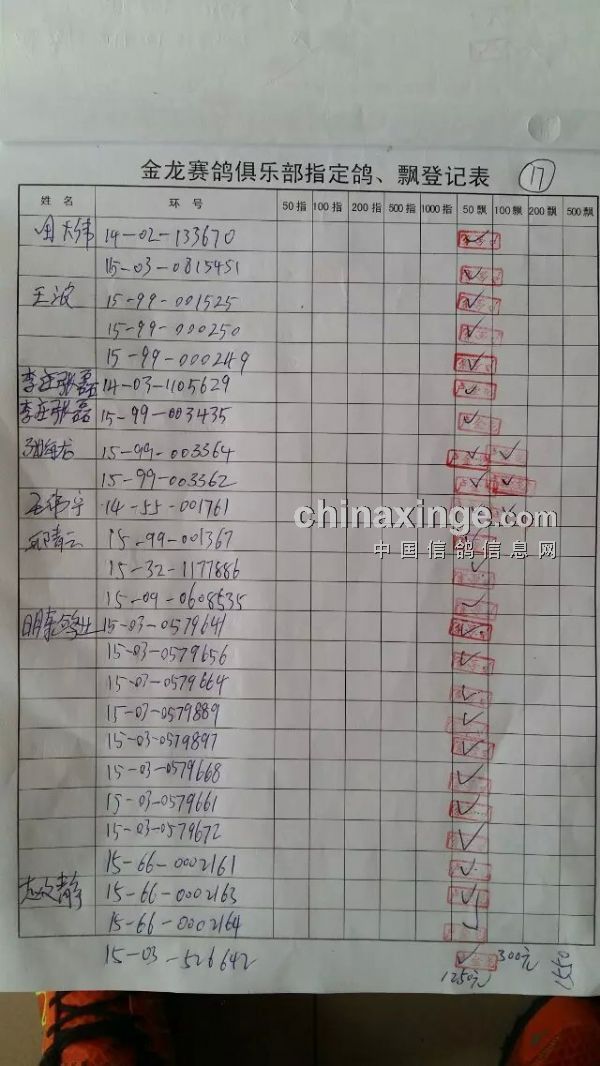 金龙赛鸽俱乐部指定鸽、飘登记表 17
姓名 环号 50指 100指 200指 500指 1000指 50飘 100飘 200飘 500飘
14-02-133670
15-03-0815451
王波 15-99-001525
15-99-000250
15-99-000249
李庄张磊 14-03-1105629
李庄张磊 15-99-003435
15-99-003364
15-99-003362
王伟宇 14-55-001761
邱青云 15-99-001367
15-32-1177886
15-09-0608535
15-03-0579641
15-03-0579656
15-03-0579664
15-03-0579889
15-03-0579897
15-03-0579668
15-03-0579661
15-03-0579672
15-66-0002161
15-66-0002163
15-66-0002164
15-03-526642
1250元 300元 1550
chinaxinge.com
中国信鸽信息网